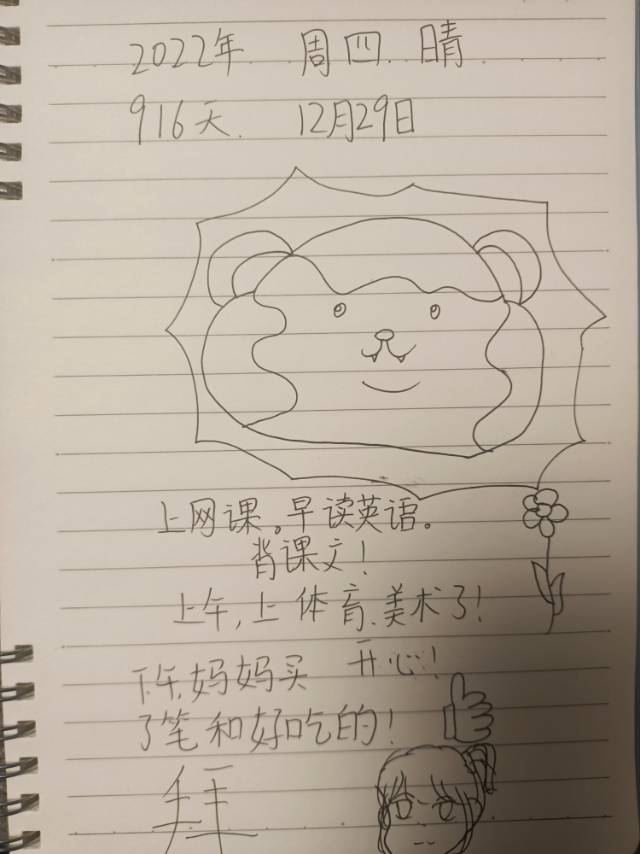 2022年 周四 晴
916天. 12月29日
上网课。早读英语。
背课文!
上午,上体育.美术了!
开心!
下午妈妈买
了笔和好吃的!
拜